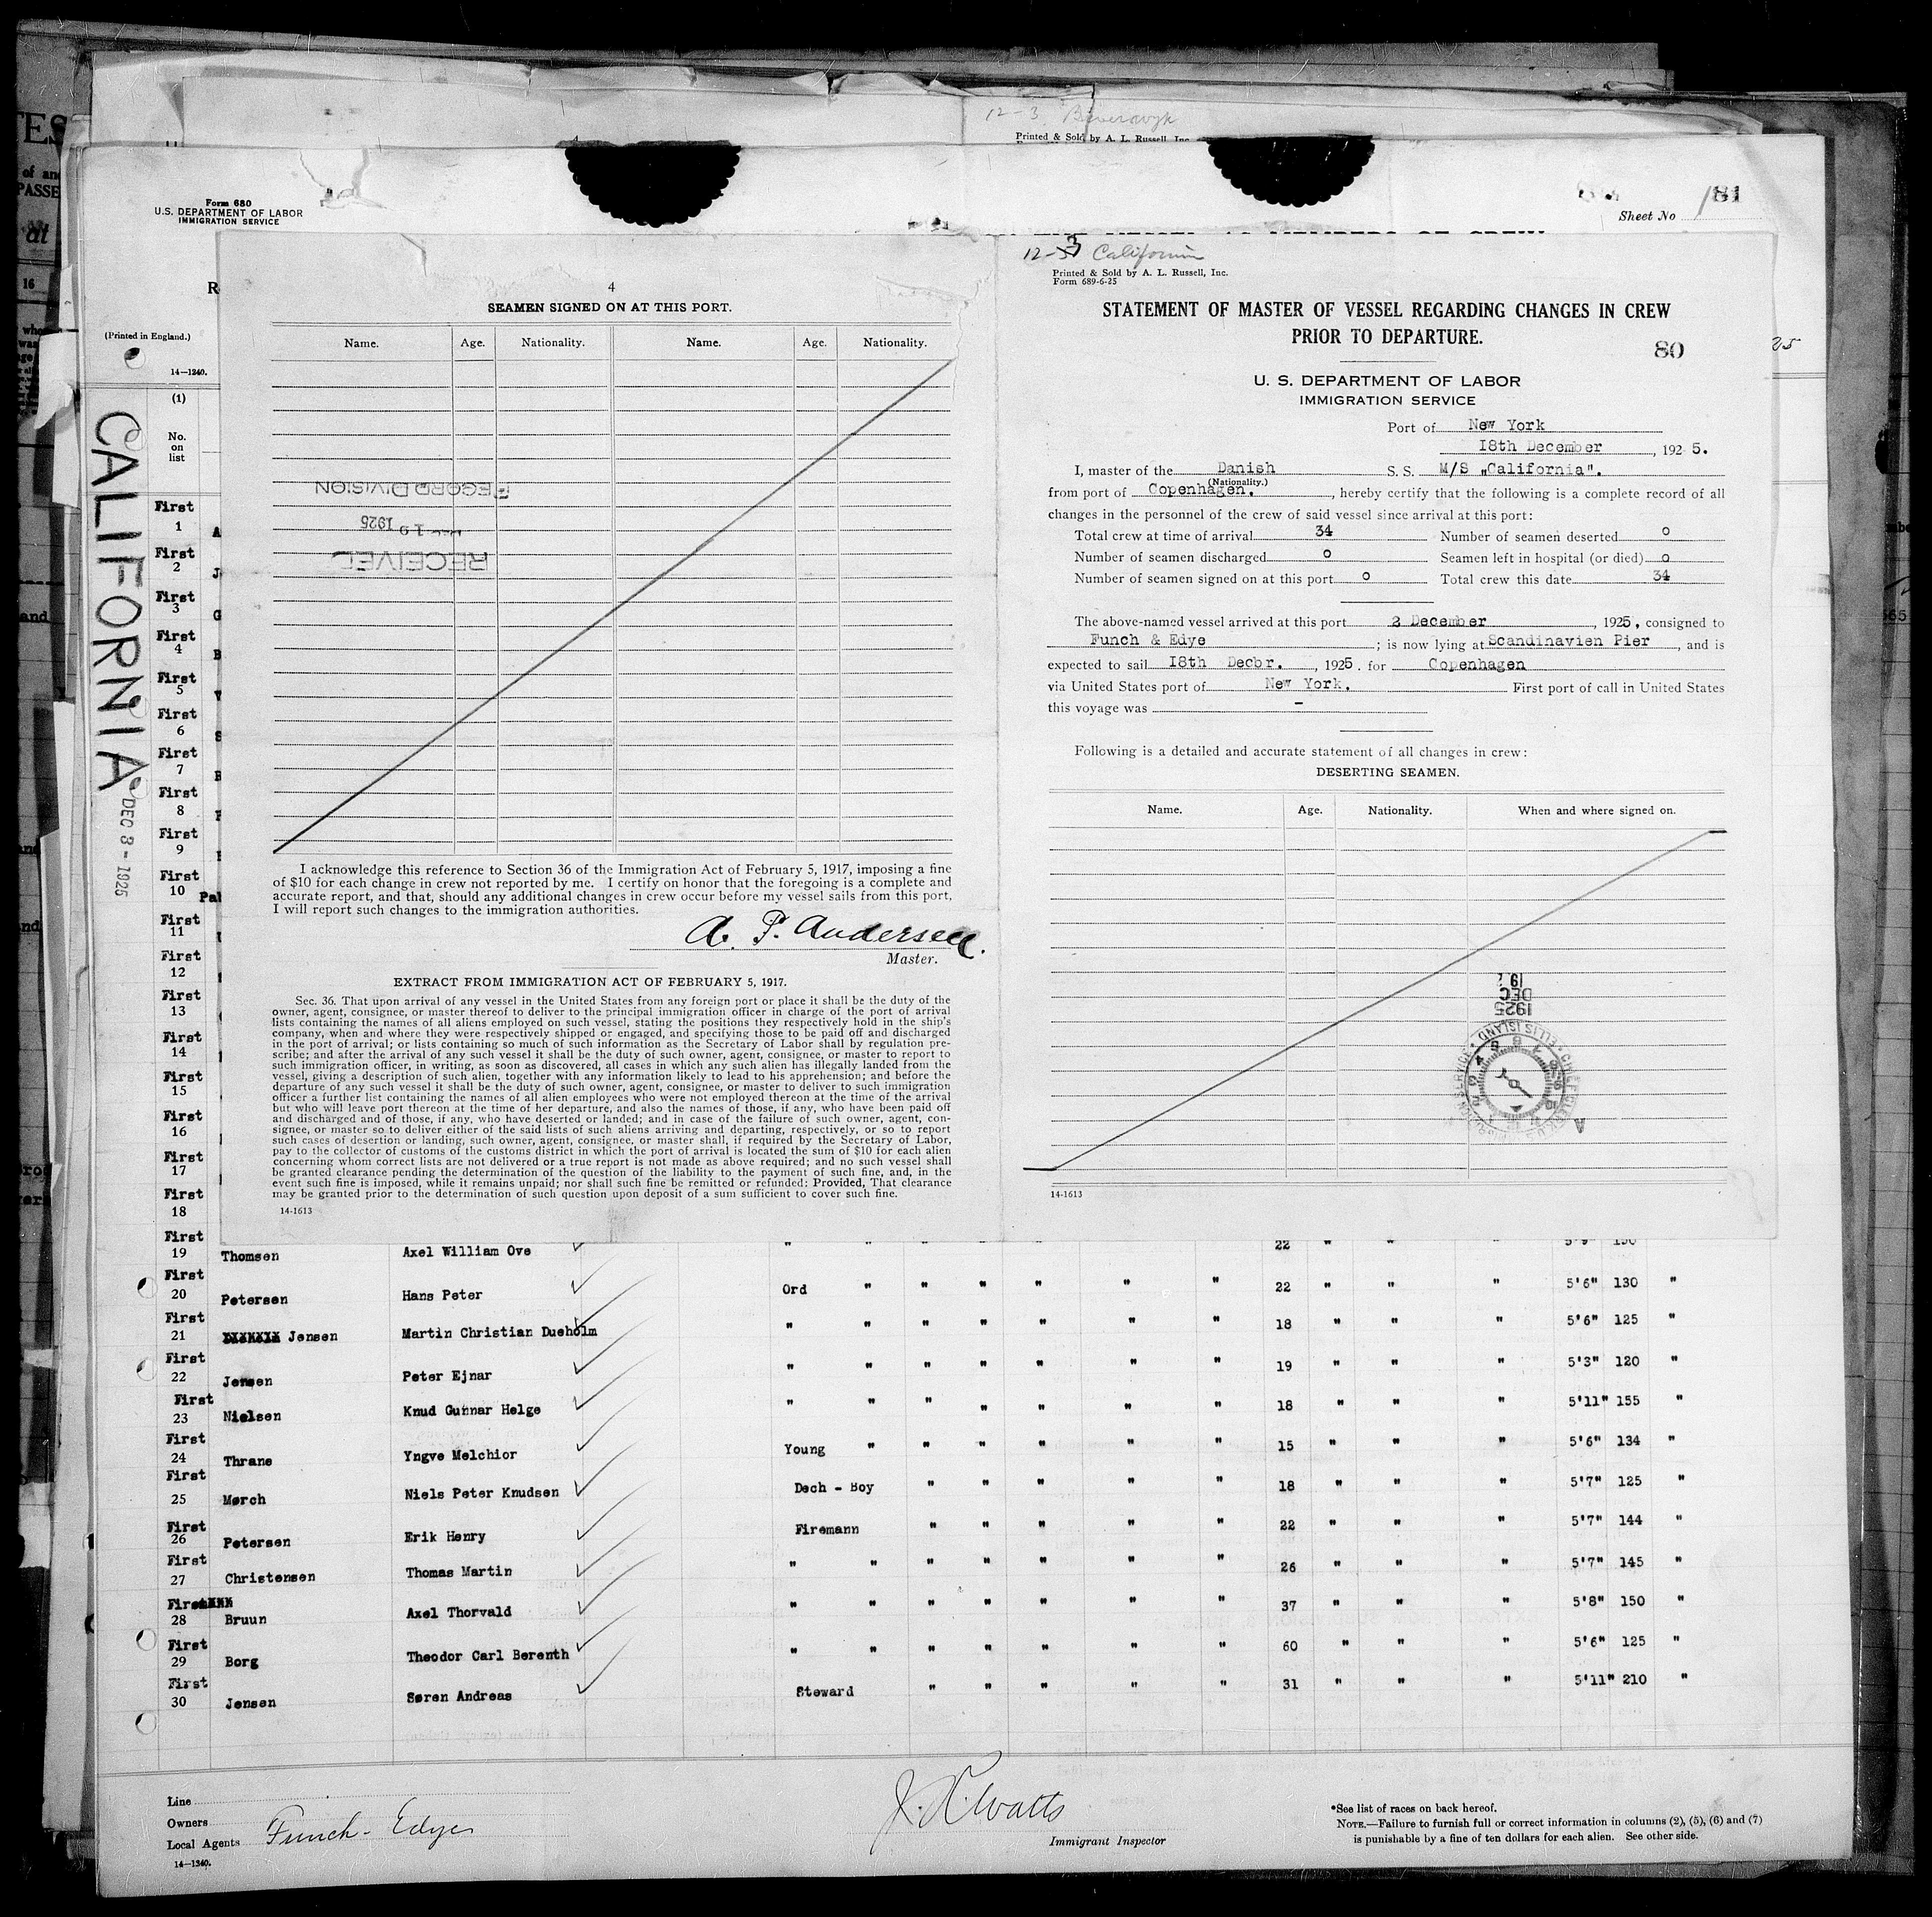 TES
of an
PASSE
at
16
12-3. Beverwyk
Printed & Sold by A. L. Russell, Inc
Form 680
U. S. DEPARTMENT OF LABOR
IMMIGRATION SERVICE
81
Sheet No
R
(Printed in England.)
14—1240.
(1)
No.
on
list
CALIFORNIA
DEC 3 - 1925
4
SEAMEN SIGNED ON AT THIS PORT.
Name. Age. Nationality. Name. Age. Nationality.
RECORD DIVISION
1925
RECEIVED
I acknowledge this reference to Section 36 of the Immigration Act of February 5, 1917, imposing a fine
of $10 for each change in crew not reported by me. I certify on honor that the foregoing is a complete and
accurate report, and that, should any additional changes in crew occur before my vessel sails from this port,
I will report such changes to the immigration authorities.
A. P. Andersen.
Master.
EXTRACT FROM IMMIGRATION ACT OF FEBRUARY 5, 1917.
Sec. 36. That upon arrival of any vessel in the United States from any foreign port or place it shall be the duty of the
owner, agent, consignee, or master thereof to deliver to the principal immigration officer in charge of the port of arrival
lists containing the names of all aliens employed on such vessel, stating the positions they respectively hold in the ship's
company, when and where they were respectively shipped or engaged, and specifying those to be paid off and discharged
in the port of arrival; or lists containing so much of such information as the Secretary of Labor shall by regulation pre-
scribe; and after the arrival of any such vessel it shall be the duty of such owner, agent, consignee, or master to report to
such immigration officer, in writing, as soon as discovered, all cases in which any such alien has illegally landed from the
vessel, giving a description of such alien, together with any information likely to lead to his apprehension; and before the
departure of any such vessel it shall be the duty of such owner, agent, consignee, or master to deliver to such immigration
officer a further list containing the names of all alien employees who were not employed thereon at the time of the arrival
but who will leave port thereon at the time of her departure, and also the names of those, if any, who have been paid off
and discharged and of those, if any, who have deserted or landed; and in case of the failure of such owner, agent, con-
signee, or master so to deliver either of the said lists of such aliens arriving and departing, respectively, or so to report
such cases of desertion or landing, such owner, agent, consignee, or master shall, if required by the Secretary of Labor,
pay to the collector of customs of the customs district in which the port of arrival is located the sum of $10 for each alien
concerning whom correct lists are not delivered or a true report is not made as above required; and no such vessel shall
be granted clearance pending the determination of the question of the liability to the payment of such fine, and, in the
event such fine is imposed, while it remains unpaid; nor shall such fine be remitted or refunded: Provided, That clearance
may be granted prior to the determination of such question upon deposit of a sum sufficient to cover such fine.
14-1613
12-3 California
Printed & Sold by A. L. Russell, Inc.
Form 689-6-25
STATEMENT OF MASTER OF VESSEL REGARDING CHANGES IN CREW
PRIOR TO DEPARTURE.
80
25
U. S. DEPARTMENT OF LABOR
IMMIGRATION SERVICE
Port of New York
18th December, 1925.
I, master of the Danish S. S. M/S „California".
(Nationality.)
from port of Copenhagen., hereby certify that the following is a complete record of all
changes in the personnel of the crew of said vessel since arrival at this port:
Total crew at time of arrival 34 Number of seamen deserted 0
Number of seamen discharged 0 Seamen left in hospital (or died) 0
Number of seamen signed on at this port 0 Total crew this date 34
The above-named vessel arrived at this port 2 December, 1925, consigned to
Funch & Edye; is now lying at Scandinavien Pier, and is
expected to sail 18th Decbr., 1925. for Copenhagen
via United States port of New York. First port of call in United States
this voyage was -
Following is a detailed and accurate statement of all changes in crew:
DESERTING SEAMEN.
Name. Age. Nationality. When and where signed on.
19
DEC
1925
ELLIS ISLAND
14-1613
First
1
First
2
First
3
First
4
First
5
First
6
First
7
First
8
First
9
First
10
First
11
First
12
First
13
First
14
First
15
First
16
First
17
First
18
First
19 Thomsen Axel William Ove " " " " " " " 22 " " " 5'9" 150
First
20 Petersen Hans Peter Ord " " " " " " 22 " " " 5'6" 130 "
First
21 Jensen Martin Christian Dueholm " " " " " " " 18 " " " 5'6" 125 "
First
22 Jensen Peter Ejnar " " " " " " " 19 " " " 5'3" 120 "
First
23 Nielsen Knud Gunnar Helge " " " " " " " 18 " " " 5'11" 155 "
First
24 Thrane Yngve Melchior Young " " " " " " 15 " " " 5'6" 134 "
First
25 Mørch Niels Peter Knudsen Dech - Boy " " " " " 18 " " " 5'7" 125 "
First
26 Petersen Erik Henry Firemann " " " " " 22 " " " 5'7" 144 "
First
27 Christensen Thomas Martin " " " " " " " 26 " " " 5'7" 145 "
First
28 Bruun Axel Thorvald " " " " " " " 37 " " " 5'8" 150 "
First
29 Borg Theodor Carl Berenth " " " " " " " 60 " " " 5'6" 125 "
First
30 Jensen Søren Andreas Steward " " " " " 31 " " " 5'11" 210 "
Line
Owners
Local Agents Funch-Edye
14—1340.
Watts
Immigrant Inspector
*See list of races on back hereof.
NOTE.—Failure to furnish full or correct information in columns (2), (5), (6) and (7)
is punishable by a fine of ten dollars for each alien. See other side.